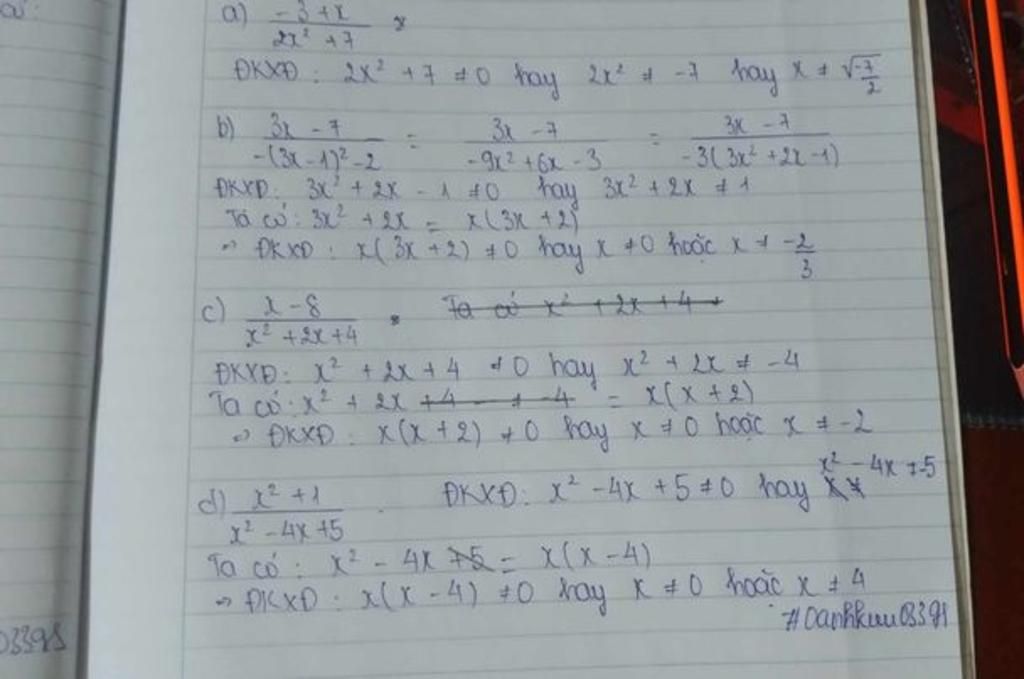 a) (-3+x)/(2x² +7)
ĐKXĐ: 2x² +7 ≠0 hay 2x² ≠ -7 hay x ≠ √(-7/2)
b) (3x -7)/(-(3x-1)² -2) = (3x -7)/(-9x² +6x -3) = (3x -7)/(-3(3x² +2x -1))
ĐKXĐ: 3x² + 2x - 1 ≠0 hay 3x² + 2x ≠ 1
Ta có: 3x² + 2x = x(3x +2)
=> ĐKXĐ: x(3x +2) ≠0 hay x ≠0 hoặc x ≠ -2/3
c) (x -8)/(x² +2x+4) Ta có x² +2x+4 ≠
ĐKXĐ: x² + 2x + 4 ≠0 hay x² + 2x ≠ -4
Ta có: x² + 2x +4 ≠ -4 = x(x +2)
=> ĐKXĐ: x(x +2) ≠0 hay x ≠0 hoặc x ≠ -2
d) (x² +1)/(x² -4x +5) . ĐKXĐ: x² -4x +5 ≠0 hay x² -4x ≠-5
Ta có: x² - 4x +5 = x(x -4)
=> ĐKXĐ: x(x -4) ≠0 hay x ≠0 hoặc x ≠ 4
#Oanhkuu03398
03398